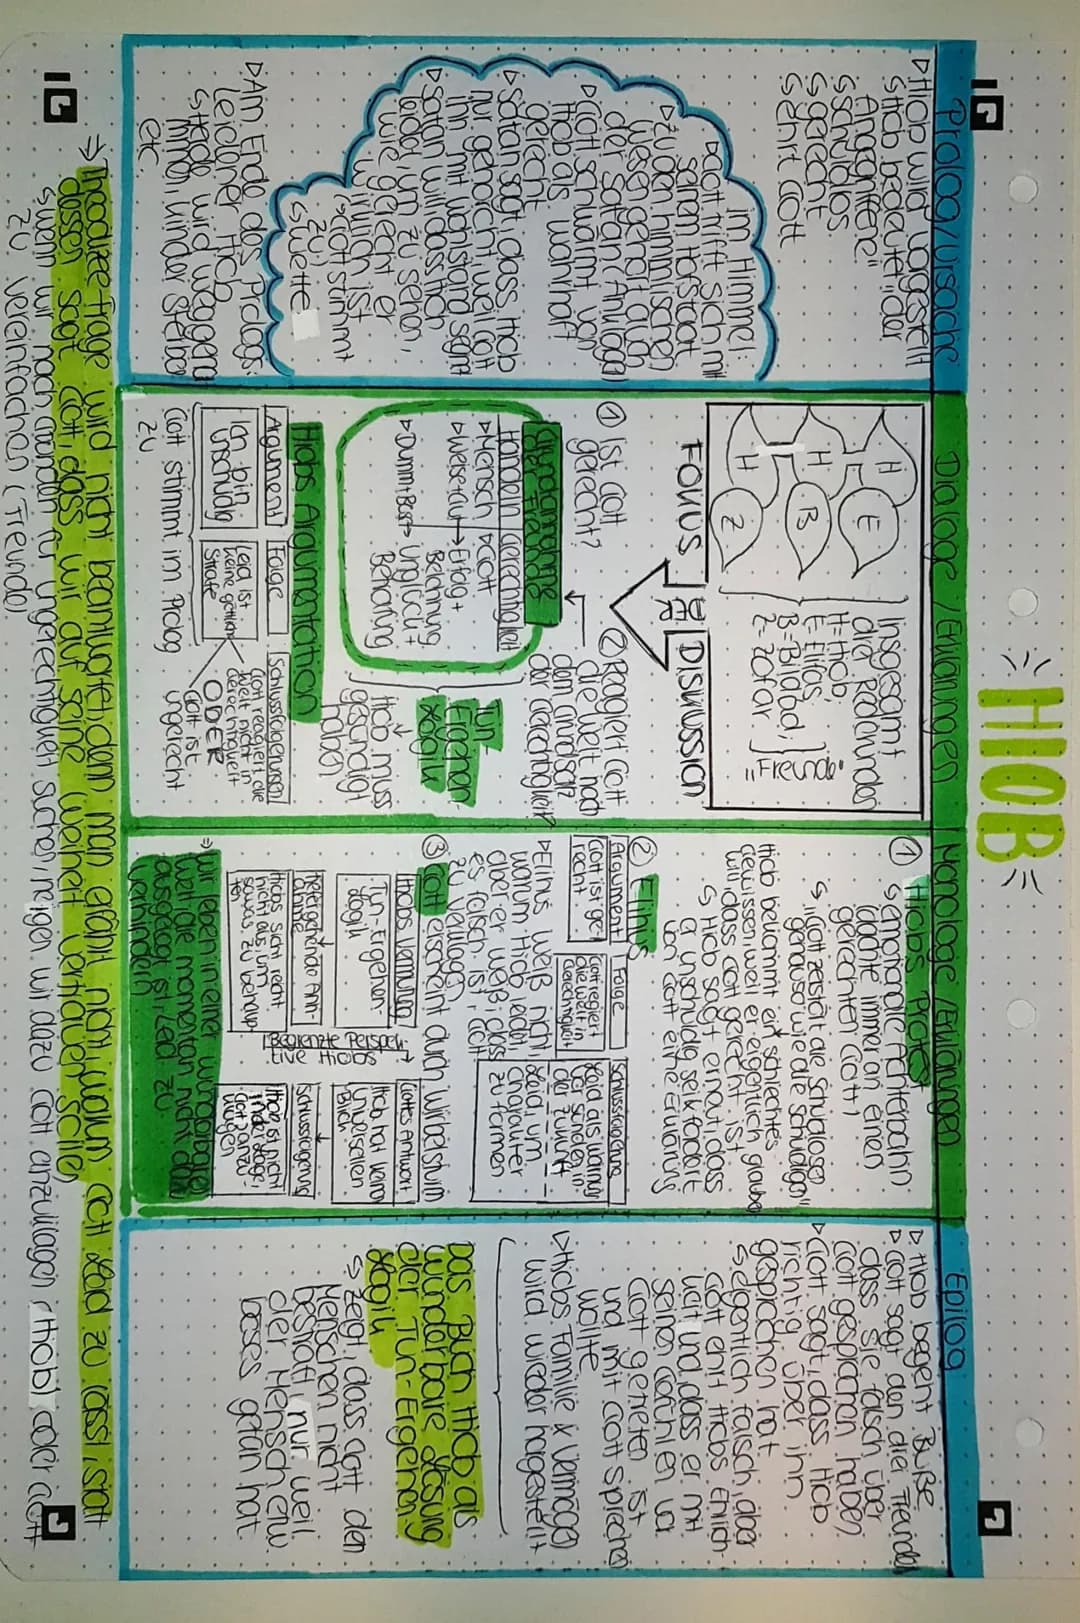 HIOB
Prolog/Ursache
▷Hiob wird vorgestellt
↳Hiob bedeutet „der
Angegriffene"
↳schuldlos
↳gerecht
↳ehrt Gott
im Himmel:
▷Gott trifft sich mit
Satan (das steht
▷zu den himmlischen
Wesen gehört auch
der Satan/Ankläger)
▷Gott schwärmt von
Hiob als wahrhaft
gerecht
▷Satan sagt, dass Hiob
nur gehorcht, weil Gott
ihn mit Wohlstand segnet
▷Satan will, dass Hiob
leidet, um zu sehen,
wie gerecht er
wirklich ist
▷Gott stimmt
zu
↳Wette
▷Am Ende des Prologs:
Leidender Hiob
↳Herde wird weggenommen,
Kinder sterben
etc.
Dialoge/Erklärungen
H E
H B
H Z
Insgesamt
drei Rederunden
H=Hiob,
E=Elifas,
B=Bildad,
Z=Zofar
„Freunde"
FOKUS DER DISKUSSION
① Ist Gott
gerecht?
② Reagiert Gott
die Welt nach
dem Grundsatz
der Gerechtigkeit?
Argumentation
der Freunde
Handeln Gerechtigkeit
▷Mensch ▷Gott
▷Weise+Gut→Erfolg+
Belohnung
▷Dumm+Böse→Unglück+
Bestrafung
Tun
Ergehen
Logik
↳
Hiob muss
gesündigt
haben
Hiobs Argumentation
Argument
Ich bin
unschuldig
Folge
Leid ist
keine göttliche
Strafe
Schlussfolgerungen
Gott regiert die
Welt nicht in
Gerechtigkeit
ODER
Gott ist
ungerecht
Gott stimmt im Prolog
zu
Monologe/Erklärungen
① Hiobs Protest
↳emotionale Achterbahn
(dachte immer an einen
gerechten Gott)
↳„Gott zerstört die Schuldlosen
genauso wie die Schuldigen"
Hiob bekommt ein schlechtes
Gewissen, weil er eigentlich glauben
will, dass Gott gerecht ist
↳ Hiob sagt erneut, dass
er unschuldig sei & fordert
von Gott eine Erklärung
② Elihus
Argument
Gott ist ge-
recht
Folge
Gott regiert
die Welt in
Gerechtigkeit
Schlussfolgerung
Leid als Warnung
vor Sünden in
der Zukunft
Leid, um
Charakter
zu formen
▷Elihus weiß nicht,
warum Hiob leidet,
aber er weiß, dass
es falsch ist, Gott
zu verklagen
③ Gott erscheint durch Wirbelsturm
Hiobs Vermutung
Tun-Ergehen-
Logik
tiefergehende Ann-
ahme
Hiobs Sicht reicht
nicht aus, um
sowas zu behaup-
ten
Begrenzte Perspek-
tive Hiobs
Gottes Antwort
Hiob hat keinen
universellen
Blick
Schlussfolgerung
Hiob ist nicht
in der Lage,
Gott anzu-
klagen
⇒ wir leben in einer wunderbaren
Welt, die momentan nicht darauf
ausgelegt ist, Leid zu
verhindern
Epilog
▷ Hiob begeht Buße
▷ Gott sagt den drei Freunden,
dass sie falsch über
Gott gesprochen haben
▷Gott sagt, dass Hiob
richtig über ihn
gesprochen hat
↳eigentlich falsch, aber
Gott ehrt Hiobs Ehrlich-
keit und, dass er mit
seinen Gefühlen vor
Gott getreten ist
und mit Gott sprechen
wollte
▷Hiobs Familie & Vermögen
wird wieder hergestellt
Das Buch Hiob als
wunderbare Lösung
der Tun-Ergehen-
Logik
↳zeigt, dass Gott den
Menschen nicht
bestraft, nur weil
der Mensch etw.
böses getan hat
⇒Theodizee-Frage wird nicht beantwortet, denn man erfährt nicht, warum Gott Leid zu lässt, statt
dessen sagt Gott, dass wir auf seine Weisheit vertrauen sollen
↳wenn wir nach Gründen für Ungerechtigkeit suchen, neigen wir dazu Gott anzuklagen (Hiob) oder Gott
zu vereinfachen (Freunde)